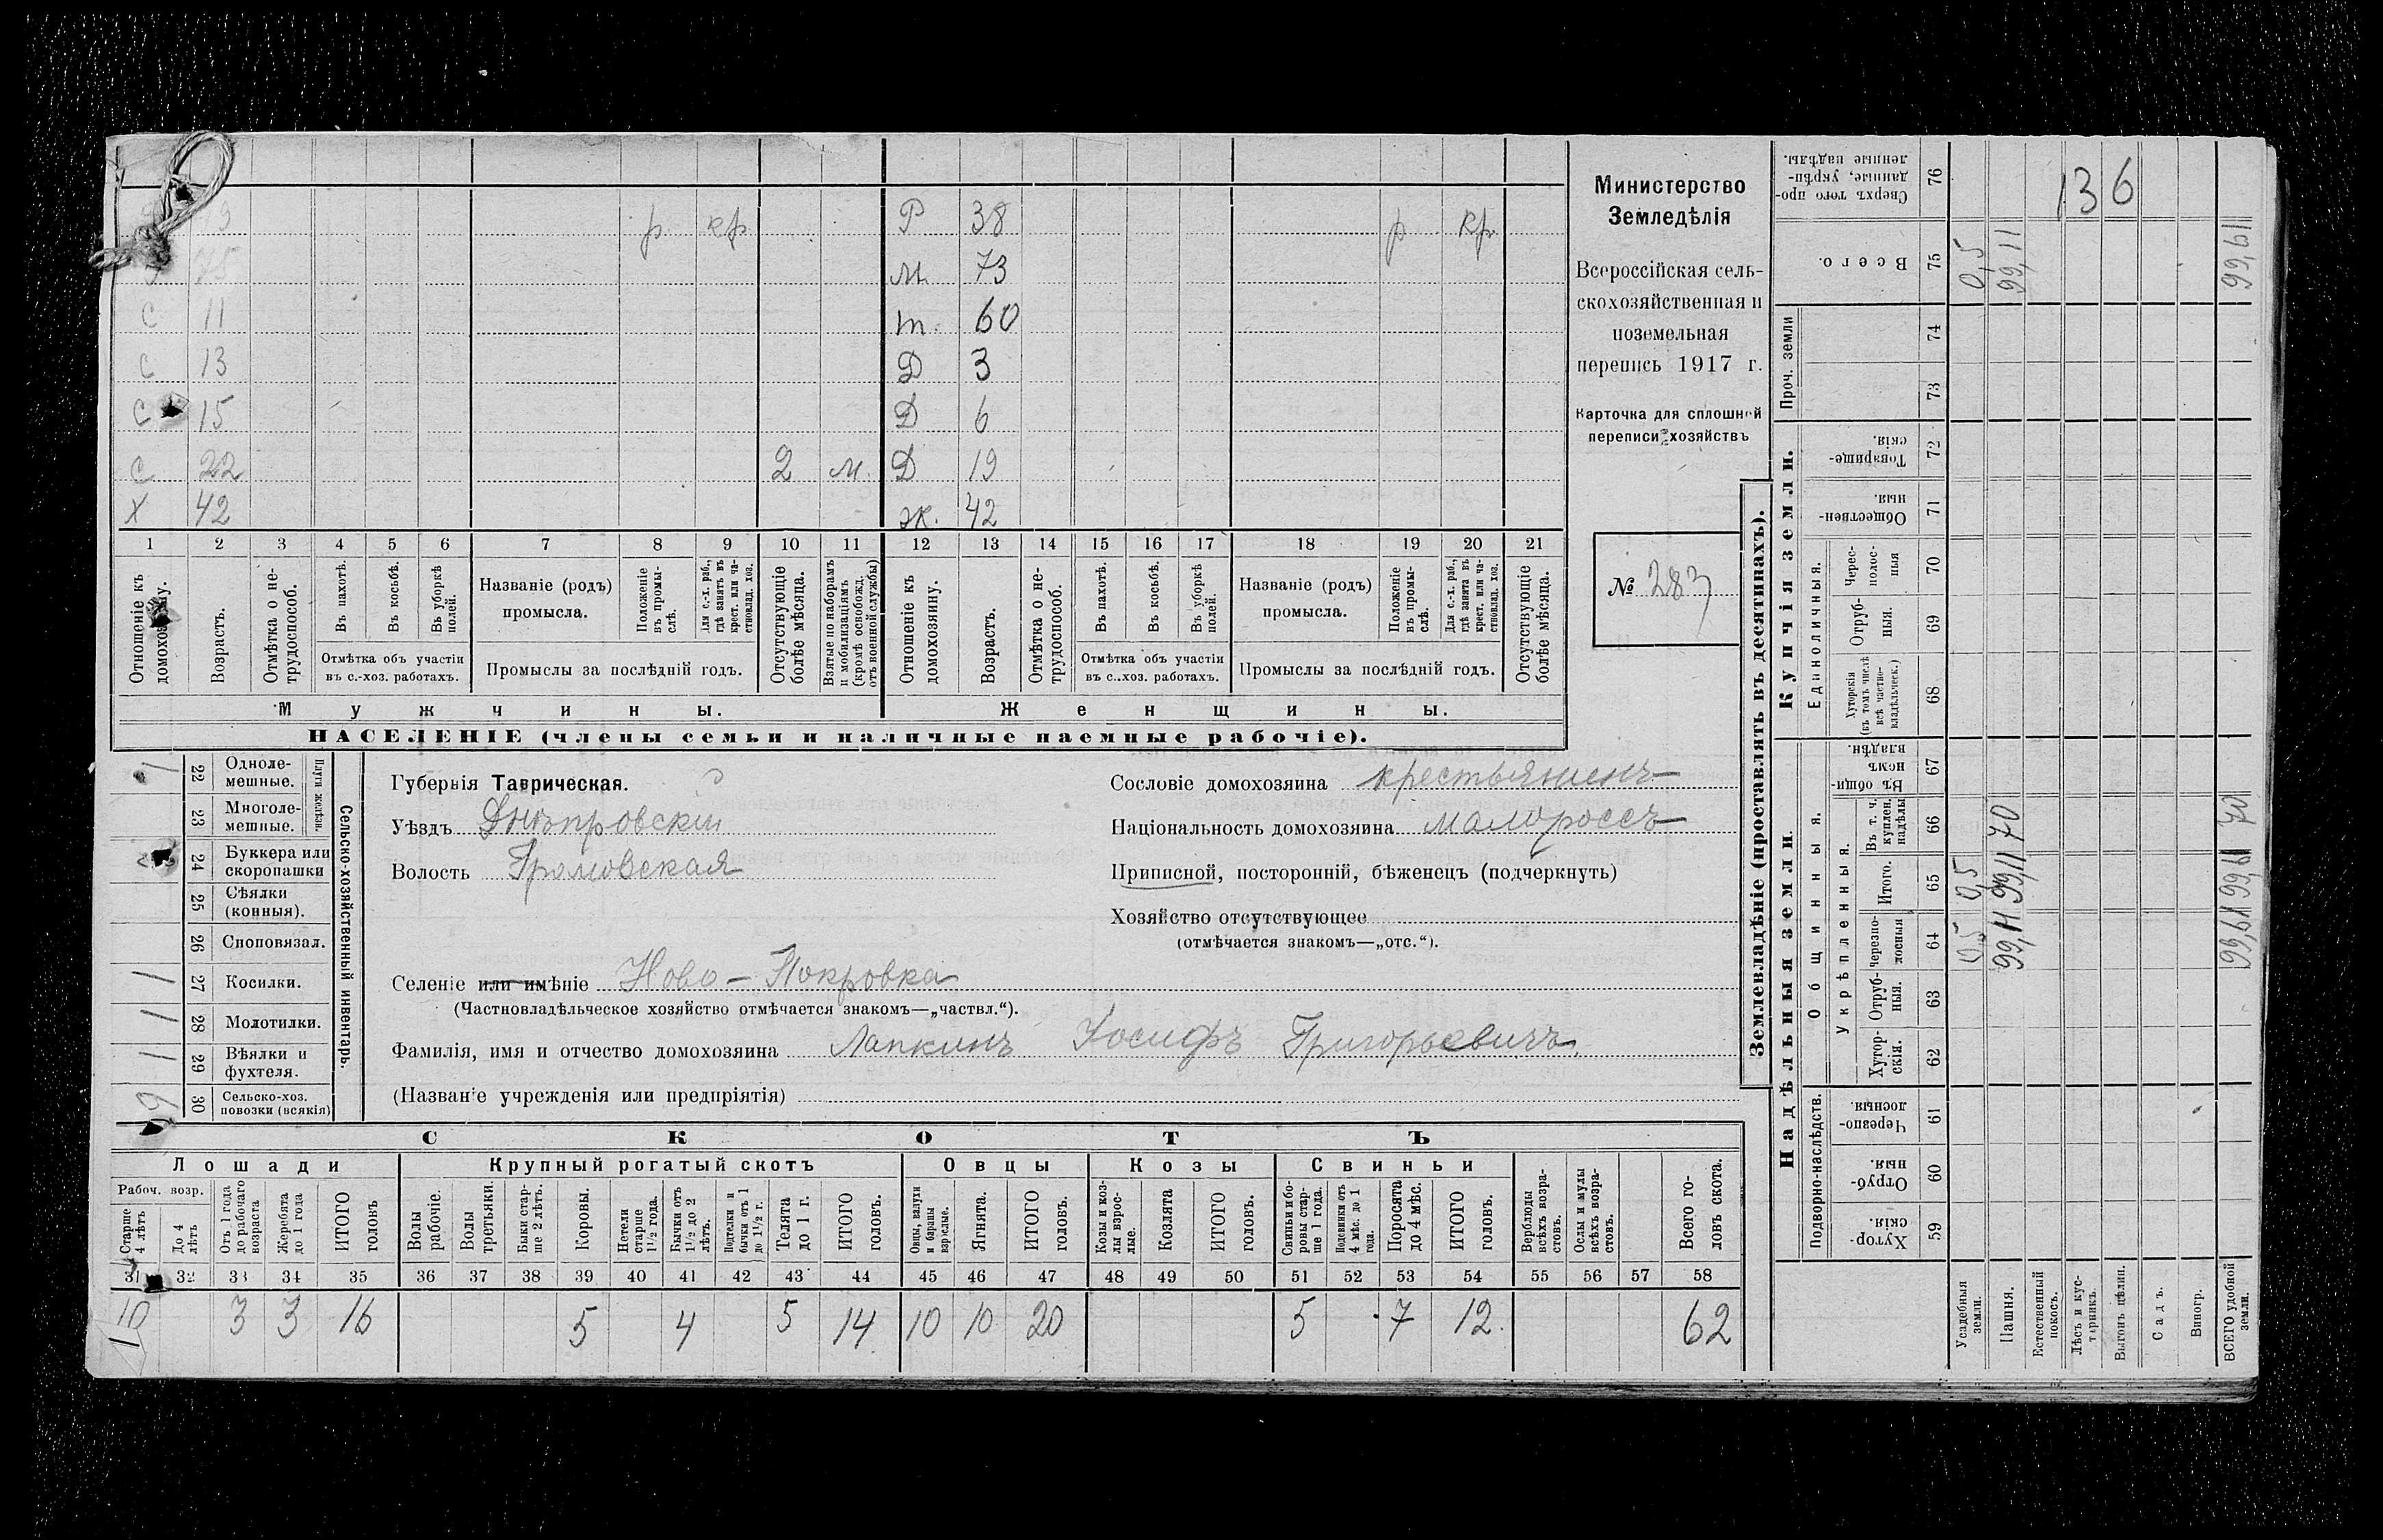 38
р кр Р 38 р кр
75 м. 73
С 11 т. 60
С 13 Д 3
С 15 Д 6
С 22 2 м. Д 19
Х 42 ж. 42
1 2 3 4 5 6 7 8 9 10 11 12 13 14 15 16 17 18 19 20 21
Отношеніе къ домохозяину.
Возрастъ.
Отмѣтка о не-трудоспособ.
Въ пахотѣ.
Въ косьбѣ.
Въ уборкѣ полей.
Отмѣтка объ участіи въ с.-хоз. работахъ.
Названіе (родъ) промысла.
Положеніе въ промы-слѣ.
Для с.-х. раб., гдѣ занятъ въ крест. или ча-стновлад. хоз.
Промыслы за послѣдній годъ.
Отсутствующіе болѣе мѣсяца.
Взятые по наборамъ и мобилизаціямъ (кромѣ освобожд. отъ военной службы)
Отношеніе къ домохозяину.
Возрастъ.
Отмѣтка о не-трудоспособ.
Въ пахотѣ.
Въ косьбѣ.
Въ уборкѣ полей.
Отмѣтка объ участіи въ с..хоз. работахъ.
Названіе (родъ) промысла.
Положеніе въ промы-слѣ.
Для с.-х. раб., гдѣ занята въ крест. или ча-стновлад. хоз.
Промыслы за послѣдній годъ.
Отсутствующіе болѣе мѣсяца.
Мужчины.
Женщины.
НАСЕЛЕНІЕ (члены семьи и наличные наемные рабочіе).
Министерство
Земледѣлія
Всероссійская сель-
скохозяйственная и
поземельная
перепись 1917 г.
Карточка для сплошной
переписи хозяйствъ
№ 283
Сельско-хозяйственный инвентарь.
Плуги желѣзн.
1 22 Одноле-мешные.
23 Многоле-мешные.
24 Буккера или скоропашки
25 Сѣялки (конныя).
26 Сноповязал.
1 27 Косилки.
1 28 Молотилки.
1 29 Вѣялки и фухтеля.
30 Сельско-хоз. повозки (всякія)
Губернія Таврическая.
Уѣздъ Днѣпровскій
Волость Громовская
Селеніе или имѣніе Ново-Покровка
(Частновладѣльческое хозяйство отмѣчается знакомъ—„частвл.“).
Фамилія, имя и отчество домохозяина Лапкинъ Іосифъ Григорьевичъ.
(Названіе учрежденія или предпріятія)
Сословіе домохозяина крестьянинъ
Національность домохозяина малороссъ
Приписной, посторонній, бѣженецъ (подчеркнуть)
Хозяйство отсутствующее
(отмѣчается знакомъ—„отс.“).
СКОТЪ
Лошади
Крупный рогатый скотъ
Овцы
Козы
Свиньи
Рабоч. возр.
Старше 4 лѣтъ
До 4 лѣтъ
Отъ 1 года до рабочаго возраста
Жеребята до 1 года
ИТОГО головъ
Волы рабочіе.
Волы третьяки.
Быки стар-ше 2 лѣтъ.
Коровы.
Нетели старше 1½ года.
Бычки отъ 1½ до 2 лѣтъ.
Подтелки и бычки отъ 1 до 1½ г.
Телята до 1 г.
ИТОГО головъ.
Овцы, валухи и бараны взрослые.
Ягнята.
ИТОГО головъ.
Козы и коз-лы взрос-лые.
Козлята
ИТОГО головъ.
Свиньи и бо-ровы стар-ше 1 года.
Подсвинки отъ 4 мѣс. до 1 года.
Поросята до 4 мѣс.
ИТОГО головъ.
Верблюды всѣхъ возра-стовъ.
Ослы и мулы всѣхъ возра-стовъ.
Всего го-ловъ скота.
31 32 33 34 35 36 37 38 39 40 41 42 43 44 45 46 47 48 49 50 51 52 53 54 55 56 57 58
10 3 3 16 5 4 5 14 10 10 20 5 7 12. 62
Землевладѣніе (проставлять въ десятинахъ).
Надѣльныя земли.
Купчія земли.
Подворно-наслѣдств.
Общинныя.
Укрѣпленныя.
Единоличныя.
Проч. земли
Хутор-скія. 59
Отруб-ныя. 60
Черезпо-лосныя. 61
Хутор-скія. 62
Отруб-ныя. 63
Черезпо-лосныя 64
Итого. 65
Въ т. ч. куплен. надѣлы 66
Въ общи-номъ владѣн. 67
Хуторскія (въ томъ числѣ всѣ частно-владѣльческ.) 68
Отруб-ныя. 69
Черес-полос-ныя 70
Обществен-ныя. 71
Товарище-скія. 72
73
74
Всего. 75
Сверхъ того про-данные, укрѣп-ленные надѣлы. 76
Усадебныя земли. 0,5 0,5 0,5
Пашня. 99,11 99,11 70 99,11
Естественный покосъ.
Лѣсъ и кус-тарникъ.
Выгонъ цѣлин.
Садъ.
Виногр.
ВСЕГО удобной земли. 99,61 99,61 70 99,61
136